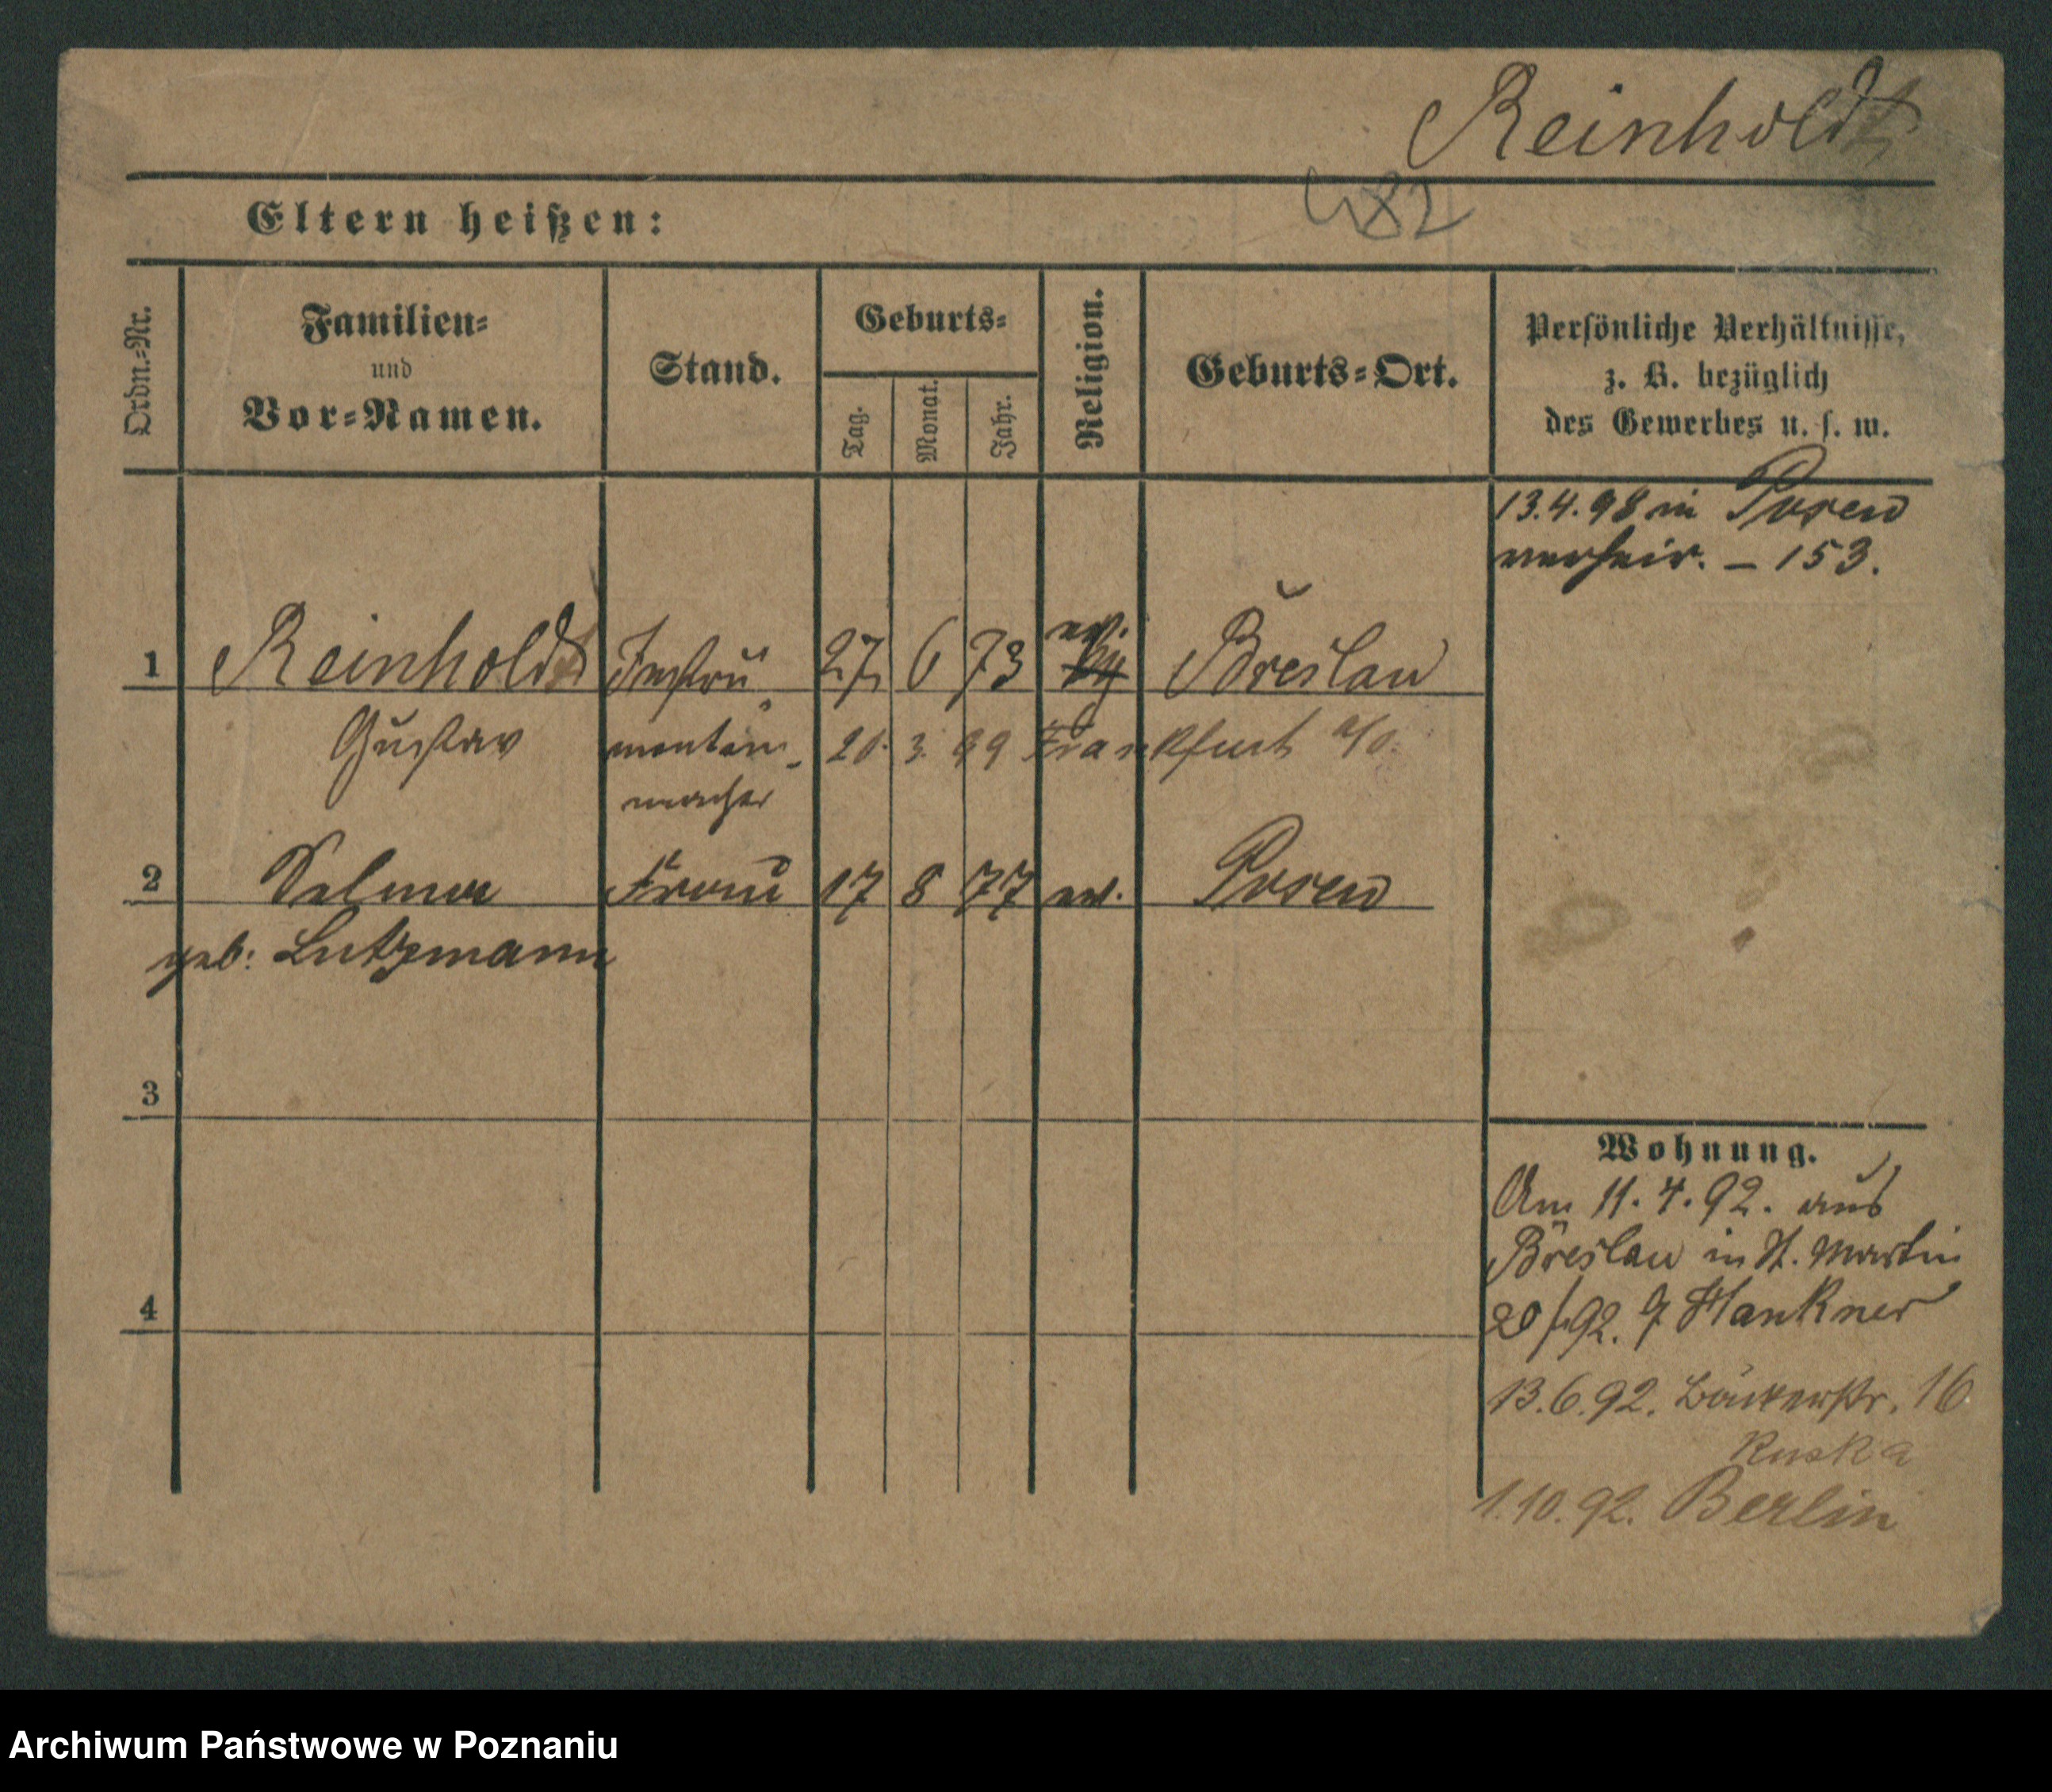 Reinhold
482
Eltern heißen:
Ordn.=Nr.
Familien=
und
Vor=Namen.
Stand.
Geburts=
Tag.
Monat.
Jahr.
Religion.
Geburts=Ort.
Persönliche Verhältnisse,
z. B. bezüglich
des Gewerbes u. s. w.
13.4.98 in Posen
verheir. – 153.
1 Reinhold Instru 27 6 73 ev. Breslau
Gustav menten 20. 3. 99 Frankfurt a/O.
macher
2 Selma Frau 17 8 77 ev. Posen
geb: Lutzmann
3
4
Wohnung.
Am 11.4.92. aus
Breslau in St. Martin
20/92. Hankner
13.6.92. Bäckerstr. 16
Ruska
1.10.92. Berlin
Archiwum Państwowe w Poznaniu